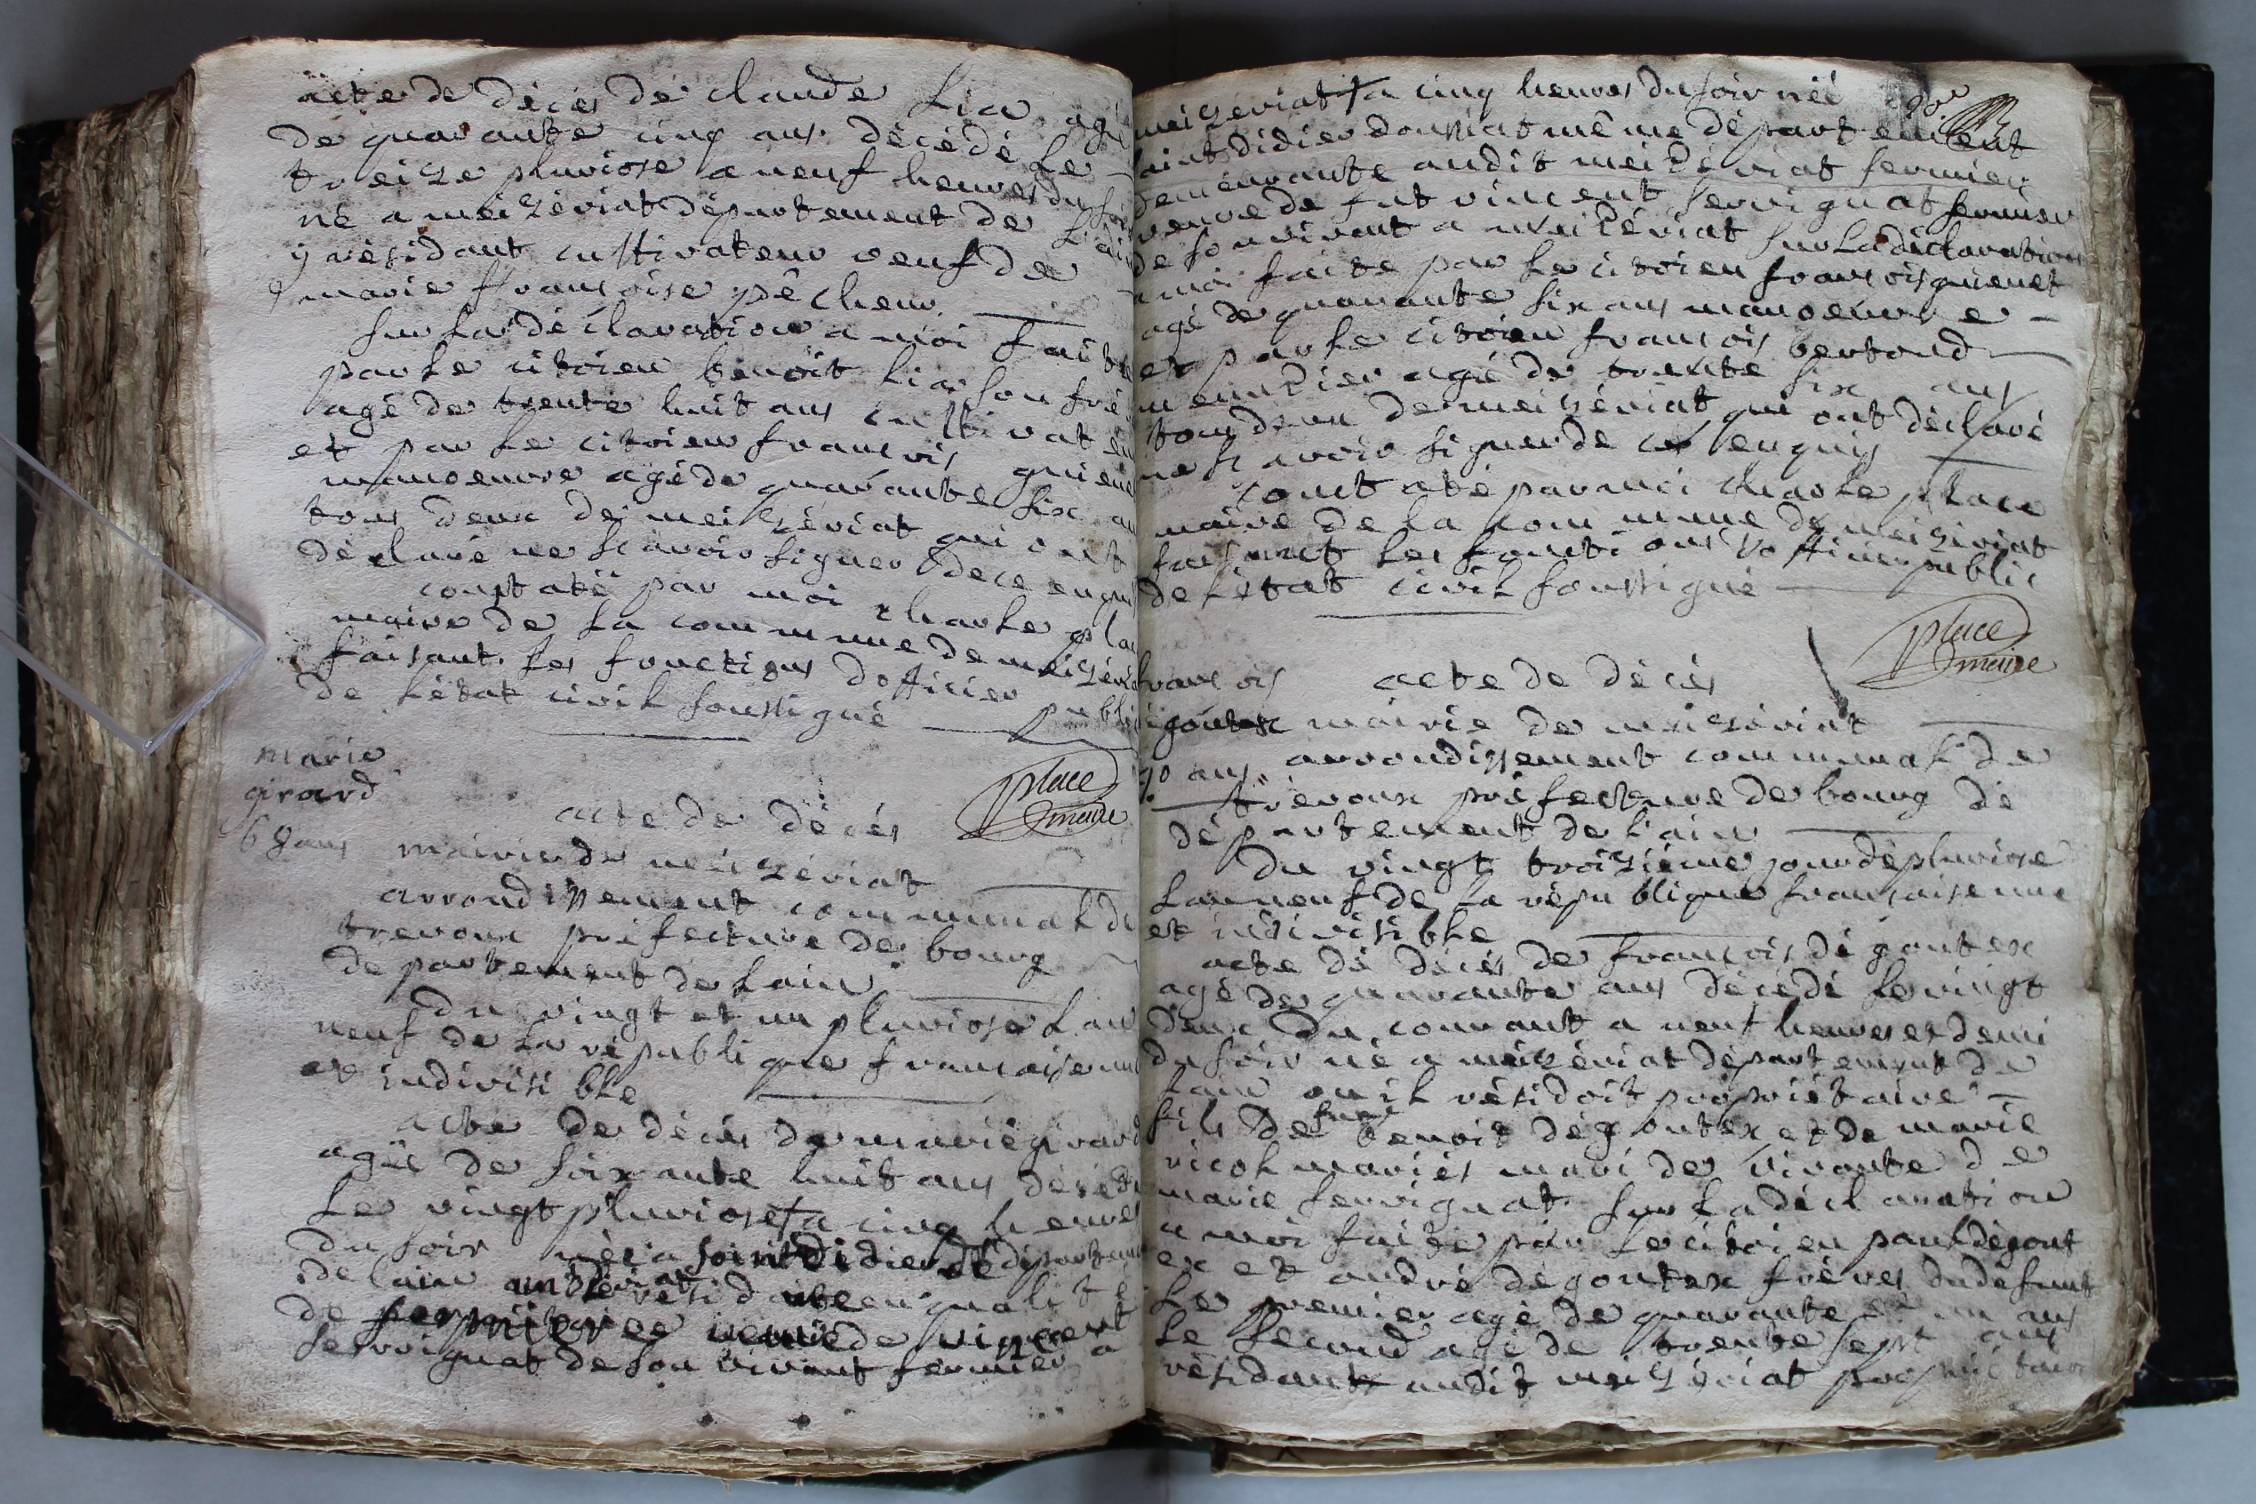 acte de décés de claude Lia agé
de quarante cinq ans décédé le
treize pluviose a neuf heures du soir
né a meizériat département de L'ain
y résidant cultivateur veuf de
marie francoise pêcheur
sur la déclaration a moi faite
par le citoien benoit Lia son frère
agé de trente huit ans cultivateur
et par le citoien francois guienet
manoeuvre agé de quarante six ans
tous deux de meizériat qui ont
déclaré ne scavoir signer de ce enquis
constaté par moi charle place
maire de la commune de meizériat
faisant les fonctions dofficier public
de létat civil soussigné
place
maire
marie
girard
68 ans
acte de décés
mairie de meizériat
arrondissement communal de
trevoux préfecture de bourg
departement de Lain
du vingt et un pluviose Lan
neuf de la république francaise une
et indivisible
acte de décés de marie girard
agée de soixante huit ans décédée
le vingt pluviose a cinq heures
du soir née a saint didier département
de lain résidante en qualité
de veuve de vincent
servignat de son vivant fermier a
90e
meizériat a cinq heures du soir née
saint didier doussiat même département
demeurante audit meizériat fermiere
veuve de fut vincent servignat fermier
de son vivant a meizériat sur la déclaration
a moi faite par le citoien francois guienet
agé de quarante six ans manoeuvre
et par le citoien francois bertoud
meunier agé de trente six ans
tous deux de meizériat qui ont déclaré
ne scavoir signer de ce enquis
constaté par moi charle place
maire de la commune de meiziriat
faisant les fonctions dofficier public
de létat civil soussigné
place
maire
francois
goutex
40 ans
acte de décés
mairie de meizériat
arrondissement communal de
trevoux préfecture de bourg
département de lain
du vingt troizième jour de pluviose
Lan neuf de la république francaise une
et indivisible
acte de décés de francois dégoutex
agé de quarante ans décédé le vingt
deux du courant a neuf heures et demi
du soir né a meizériat département de
lain ou il résidoit propriétaire
fils de feu benoit dégoutex et de marie
nicol mariés mari de vivante de
marie servignat sur la déclaration
a moi faite par le citoien paul dégout
ex et andré dégoutex fréres du défunt
le premier agé de quarante et un ans
le second agé de trente sept ans
résidant audit meizériat propriétaire